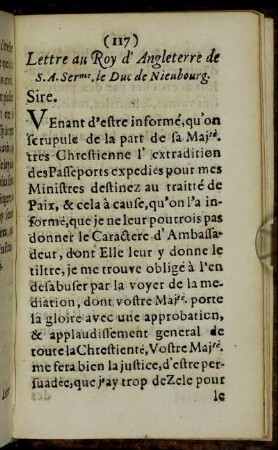 (117)
Lettre au Roy d'Angleterre de
S. A. Serme. le Duc de Nieubourg.
Sire.
VEnant d'estre informé, qu'on
scrupule de la part de sa Majté.
tres Chrestienne l' extradition
des Passeports expediés pour mes
Ministres destinez au traitté de
Paix, & cela à cause, qu'on l'a in-
formé, que je ne leur pourrois pas
donner le Caractere d'Ambassa-
deur, dont Elle leur y donne le
tiltre, je me trouve obligé à l'en
desabuser par la voyer de la me-
diation, dont vostre Majté. porte
la gloire avec une approbation,
& applaudissement general de
toute la Chrestienté, Vostre Majté.
me fera bien la justice, d'estre per-
suadée, que j'ay trop de Zele pour
le